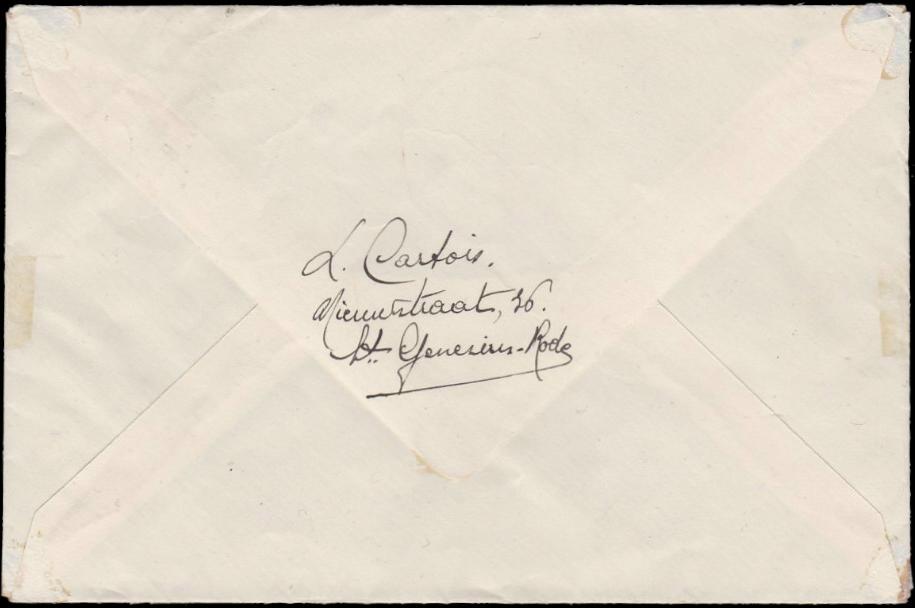 L. Cartois.
Nieuwstraat, 36.
St. Genesius-Rode